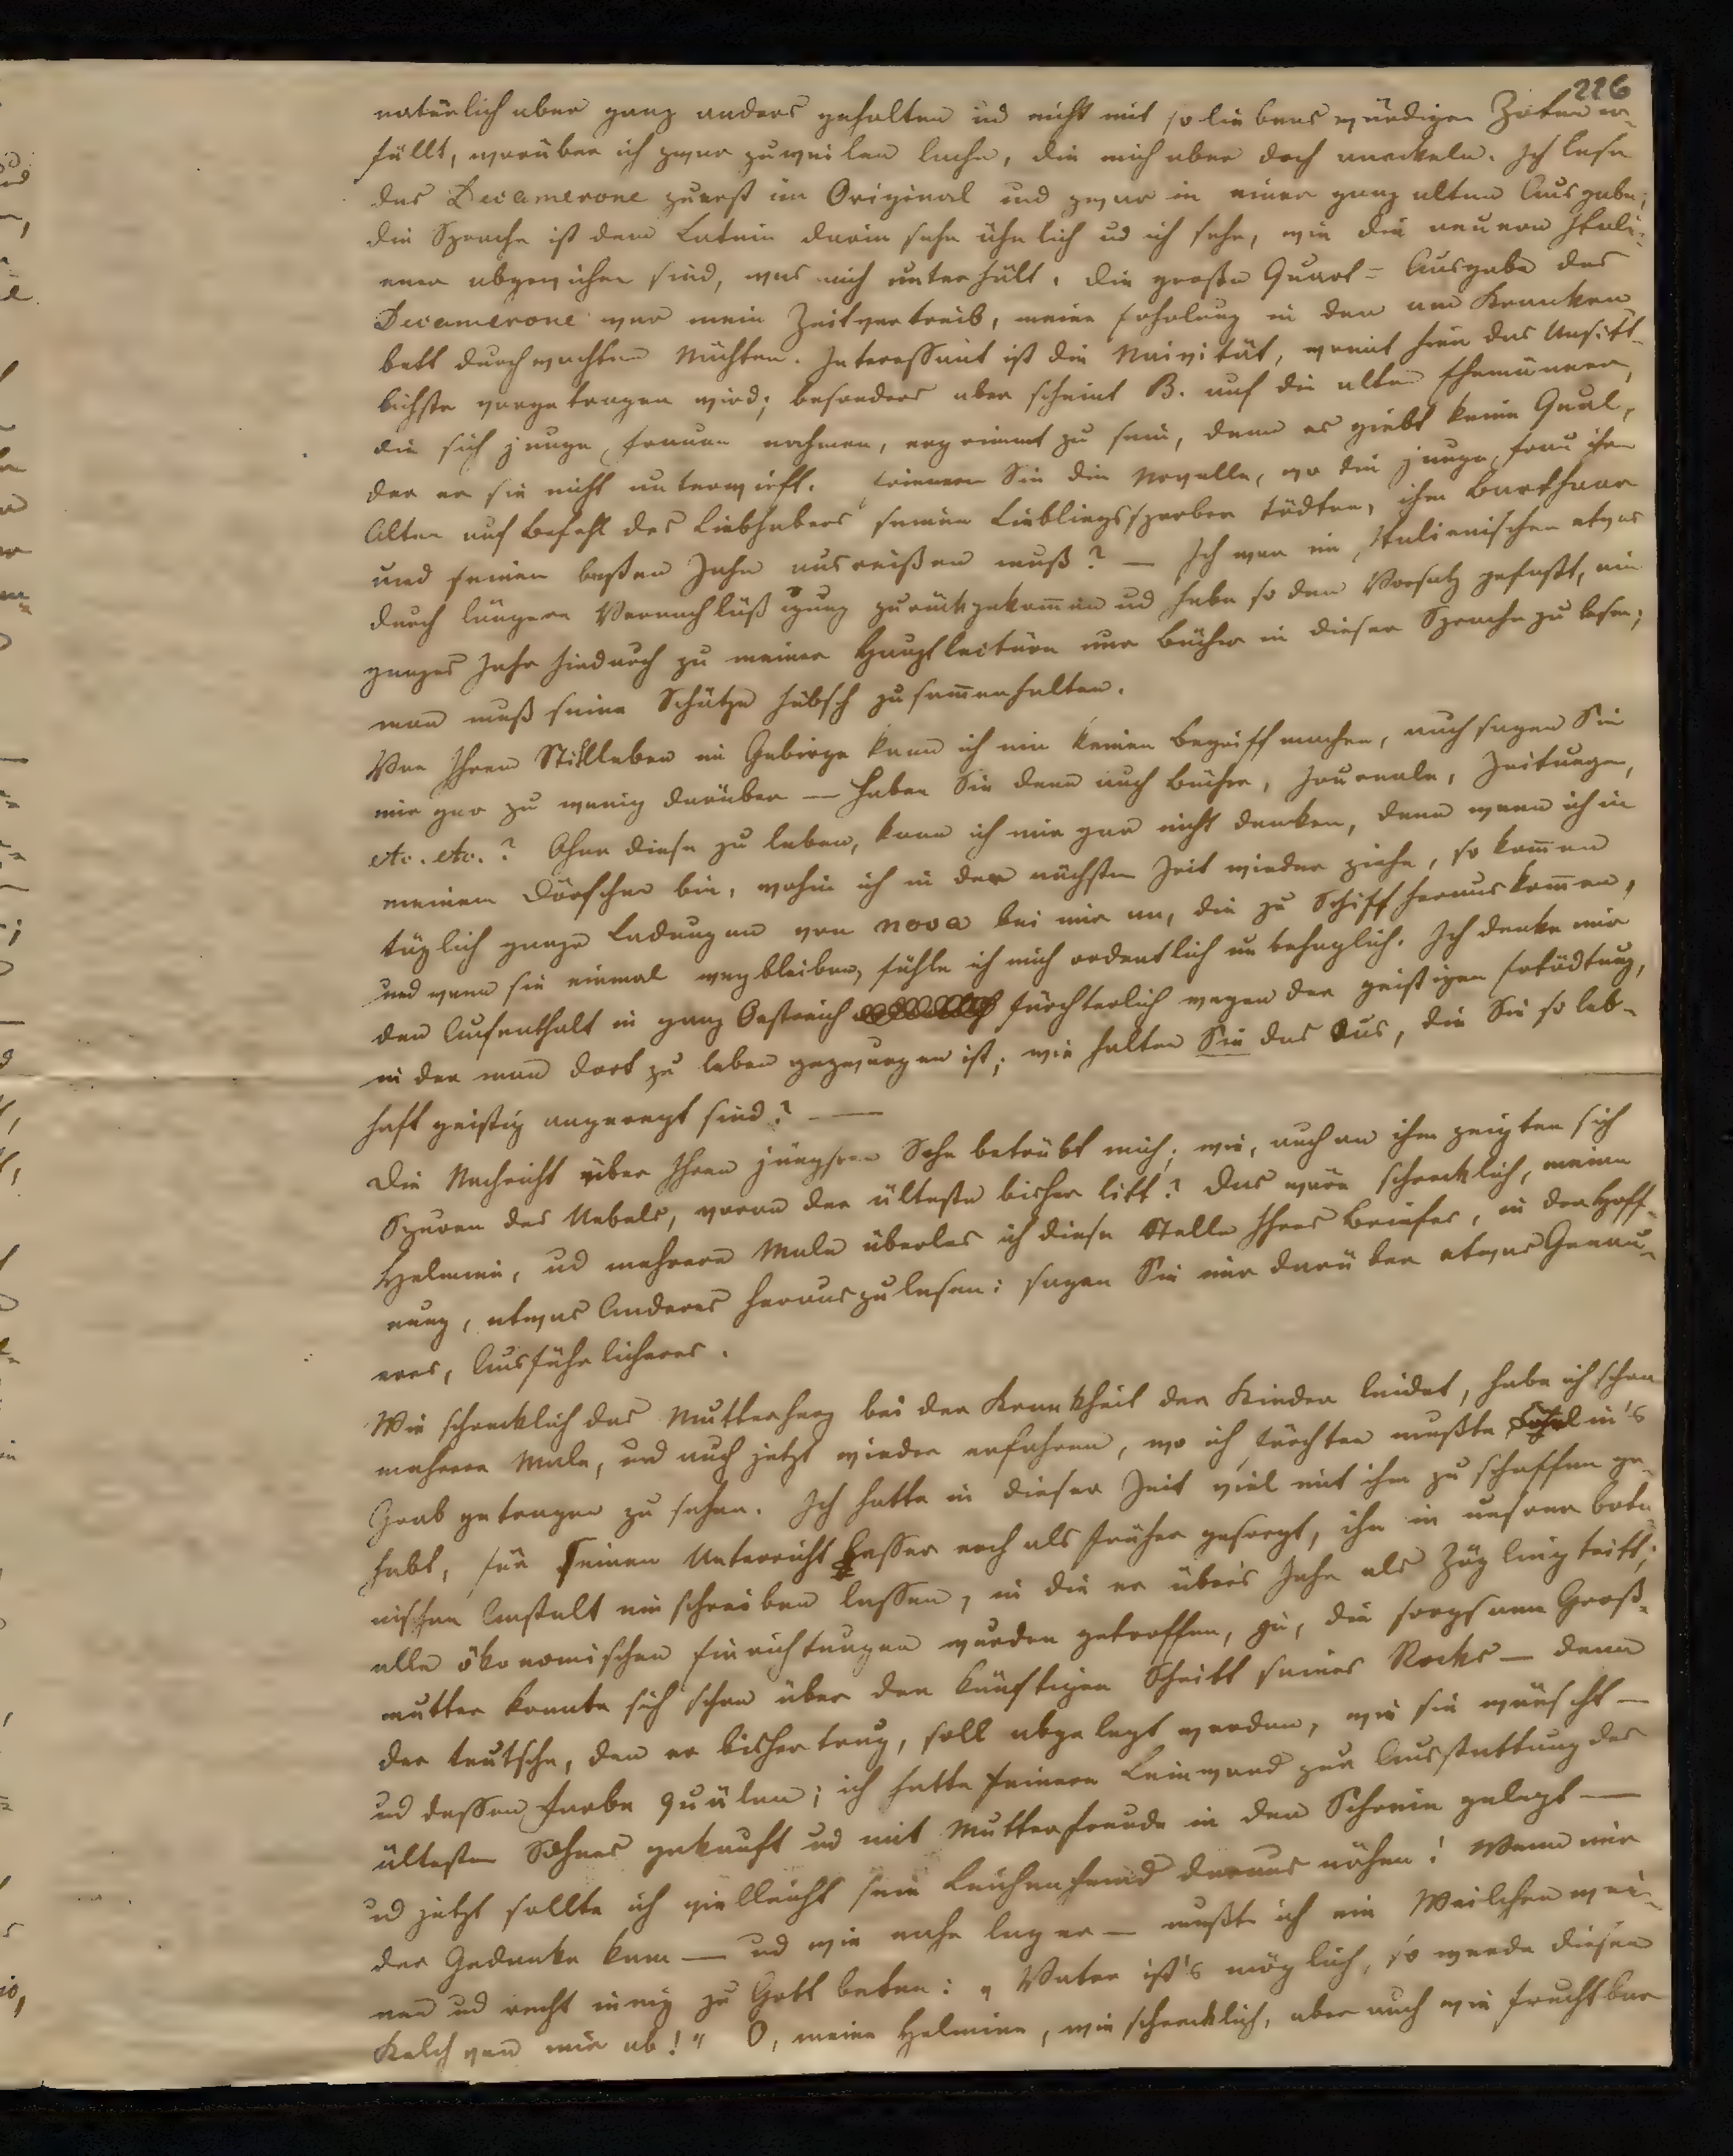 226
natürlich aber ganz anders gehalten und nicht mit so liebenswürdigen Zoten er-
füllt, worüber ich zwar zuweilen lache, die mich aber doch anekeln. Ich lese
das Decamerone zuerst im Original und zwar in einer ganz alten Ausgabe;
die Sprache ist dem Latein darin sehr ähnlich ud ich sehe, wie die neuern Itali-
ener abgewichen sind, was mich unterhält. Die große Quart-Ausgabe des
Decamerone war mein Zeitvertreib, meine Erholung in den am Kranken
bett durchwachten Nächten. Interessant ist die Naivität, womit hier das Unsitt-
lichste vorgetragen wird; besonders aber scheint B. auf die alten Ehemänner,
die sich junge Frauen nahmen, ergrimmt zu sein, denn es giebt keine Qual,
der er sie nicht unterwirft. Erinnern Sie die Novelle, wo die junge Frau ihrem
Alten auf Befehl des Liebhabers seinen Lieblingssperber tödten, ihm Barthaar
und seinen besten Zahn ausreißen muß? — Ich war im Italienischen etwas
durch längere Vernachläßigung zurückgekommen ud habe so den Vorsatz gefaßt, ein
ganzes Jahr hindurch zu meiner Hauptlectüre nur Bücher in dieser Sprache zu lesen;
man muß seine Schätze hübsch zusammenhalten.
Von Ihrem Stillleben im Gebirge kann ich mir keinen Begriff machen, auch sagen Sie
mir gar zu wenig darüber — haben Sie denn auch Bücher, Journale, Zeitungen,
etc. etc.? Ohne diese zu leben, kann ich mir gar nicht denken, denn wenn ich in
meinem Dörfchen bin, wohin ich in der nächsten Zeit wieder ziehe, so kommen
täglich ganze Ladungen von nova bei mir an, die zu Schiff herauskommen,
und wenn sie einmal wegbleiben, fühle ich mich ordentlich unbehaglich. Ich denke mir
den Aufenthalt in ganz Oestreich fürchterlich wegen der geistigen Ertödtung,
in der man dort zu leben gezwungen ist; wie halten Sie das aus, die Sie so leb-
haft geistig angeregt sind? —
Die Nachricht über Ihren jüngsten Sohn betrübt mich; wie, auch an ihm zeigten sich
Spuren des Uebels, woran der älteste bisher litt? Das wäre schrecklich, meine
Helmine, ud mehrere Male überlas ich diese Stelle Ihres Briefes, in der Hoff-
nung, etwas Anderes herauszulesen: sagen Sie mir darüber etwas Genau-
eres, Ausführlicheres.
Wie schrecklich das Mutterherz bei der Krankheit der Kinder leidet, habe ich schon
mehrere Male, und auch jetzt wieder erfahren, wo ich fürchten mußte in's
Grab getragen zu sehen. Ich hatte in dieser Zeit viel mit ihm zu schaffen ge-
habt, für seinen Unterricht besser noch als früher gesorgt, ihn in unserer bota-
nischen Anstalt einschreiben lassen, in die er über's Jahr als Zögling tritt;
alle ökonomischen Einrichtungen wurden getroffen, ja, die sorgsame Groß-
mutter konnte sich schon über den künftigen Schnitt seines Rocks — denn
der teutsche, den er bisher trug, soll abgelegt werden, wie sie wünscht —
ud dessen Farbe quälen; ich hatte feinere Leinwand zur Ausstattung des
ältesten Sohnes gekauft ud mit Mutterfreude in den Schrein gelegt —
ud jetzt sollte ich vielleicht sein Leichenhemd daraus nähen! Wenn mir
der Gedanke kam — ud wie nahe lag er — mußte ich ein Weilchen wei-
nen ud recht innig zu Gott beten: „Vater ist's möglich, so wende diesen
Kelch von mir ab!“ O, meine Helmine, wie schrecklich, aber auch wie fruchtbar